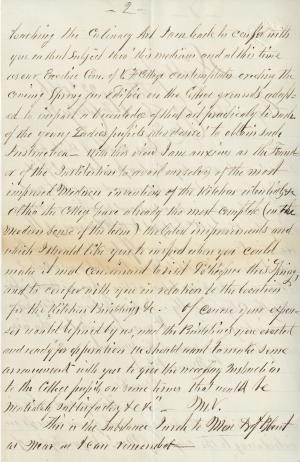 - 2 -
teaching the Culinary Art I am led to confer with
you on that Subject thro' this medium and at this time
as our Executive Com. of V. F. College contemplates erecting the
coming Spring an edifice on the College grounds adapt-
ed to impart a knowledge of that art practically to such
of the young Ladies pupils as desire to obtain such
Instruction - With this view I am anxious as the Found-
er of the Institution to avail ourselves of the most
improved Modern inventions of the Kitchen
the College I have already the most complete (in the
Modern sense of the term) the latest improvements and
which I should like you to inspect when you could
make it most convenient to visit this Spring
and to confer with you in relation to the location
for the Kitchen Building &c. Of course your expen-
ses would be paid by us, and the Buildings now erected
and ready for operation we should want to make some
arrangement with you to give the necessary Instruction
to the College pupils on some terms that would be
mutually Satisfactory &c &c" - M.V.
This is the Substance I wrote to Miss
as near as I can remember